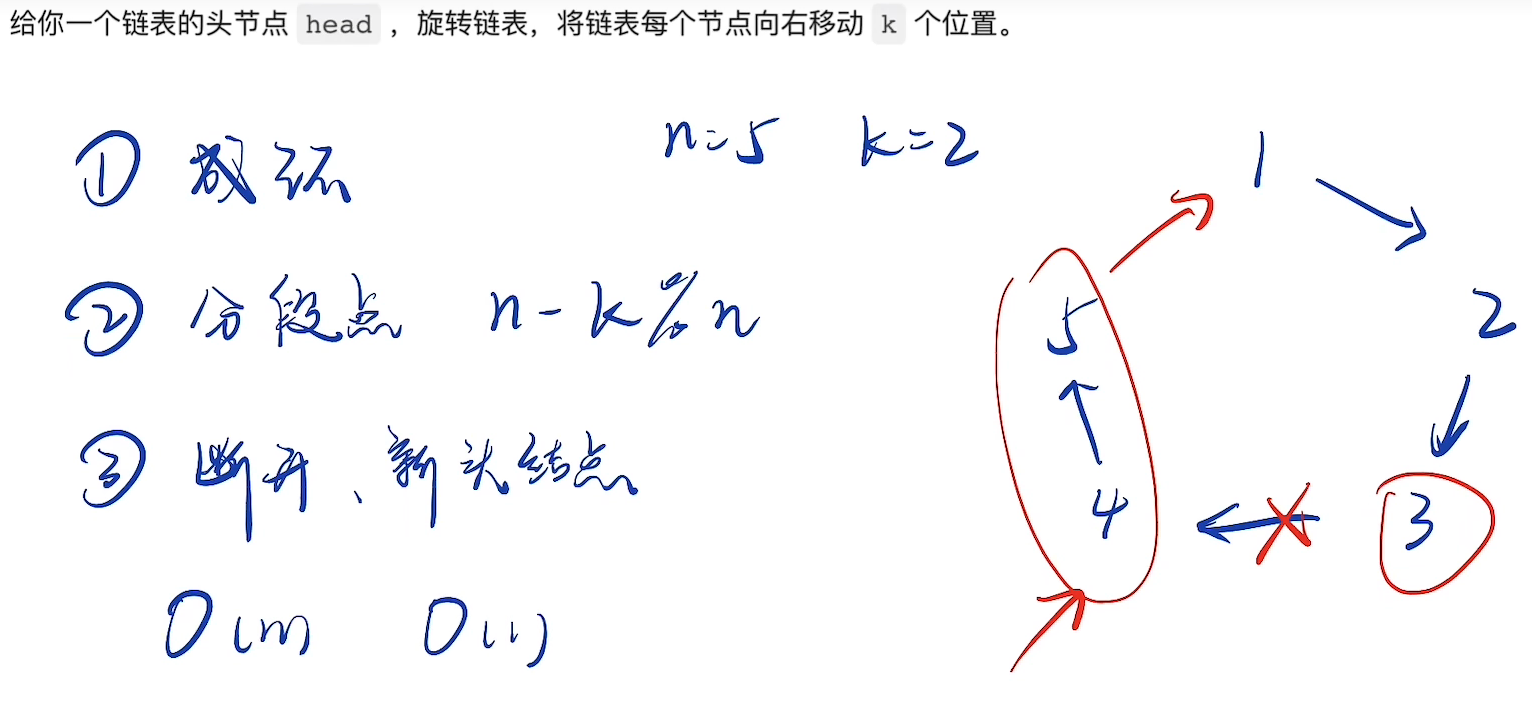 给你一个链表的头节点 head ，旋转链表，将链表每个节点向右移动 k 个位置。
① 成环
n=5 k=2
② 分段点 n-k%n
③ 断开、新头结点
O(n) O(1)
1
2
3
4
5